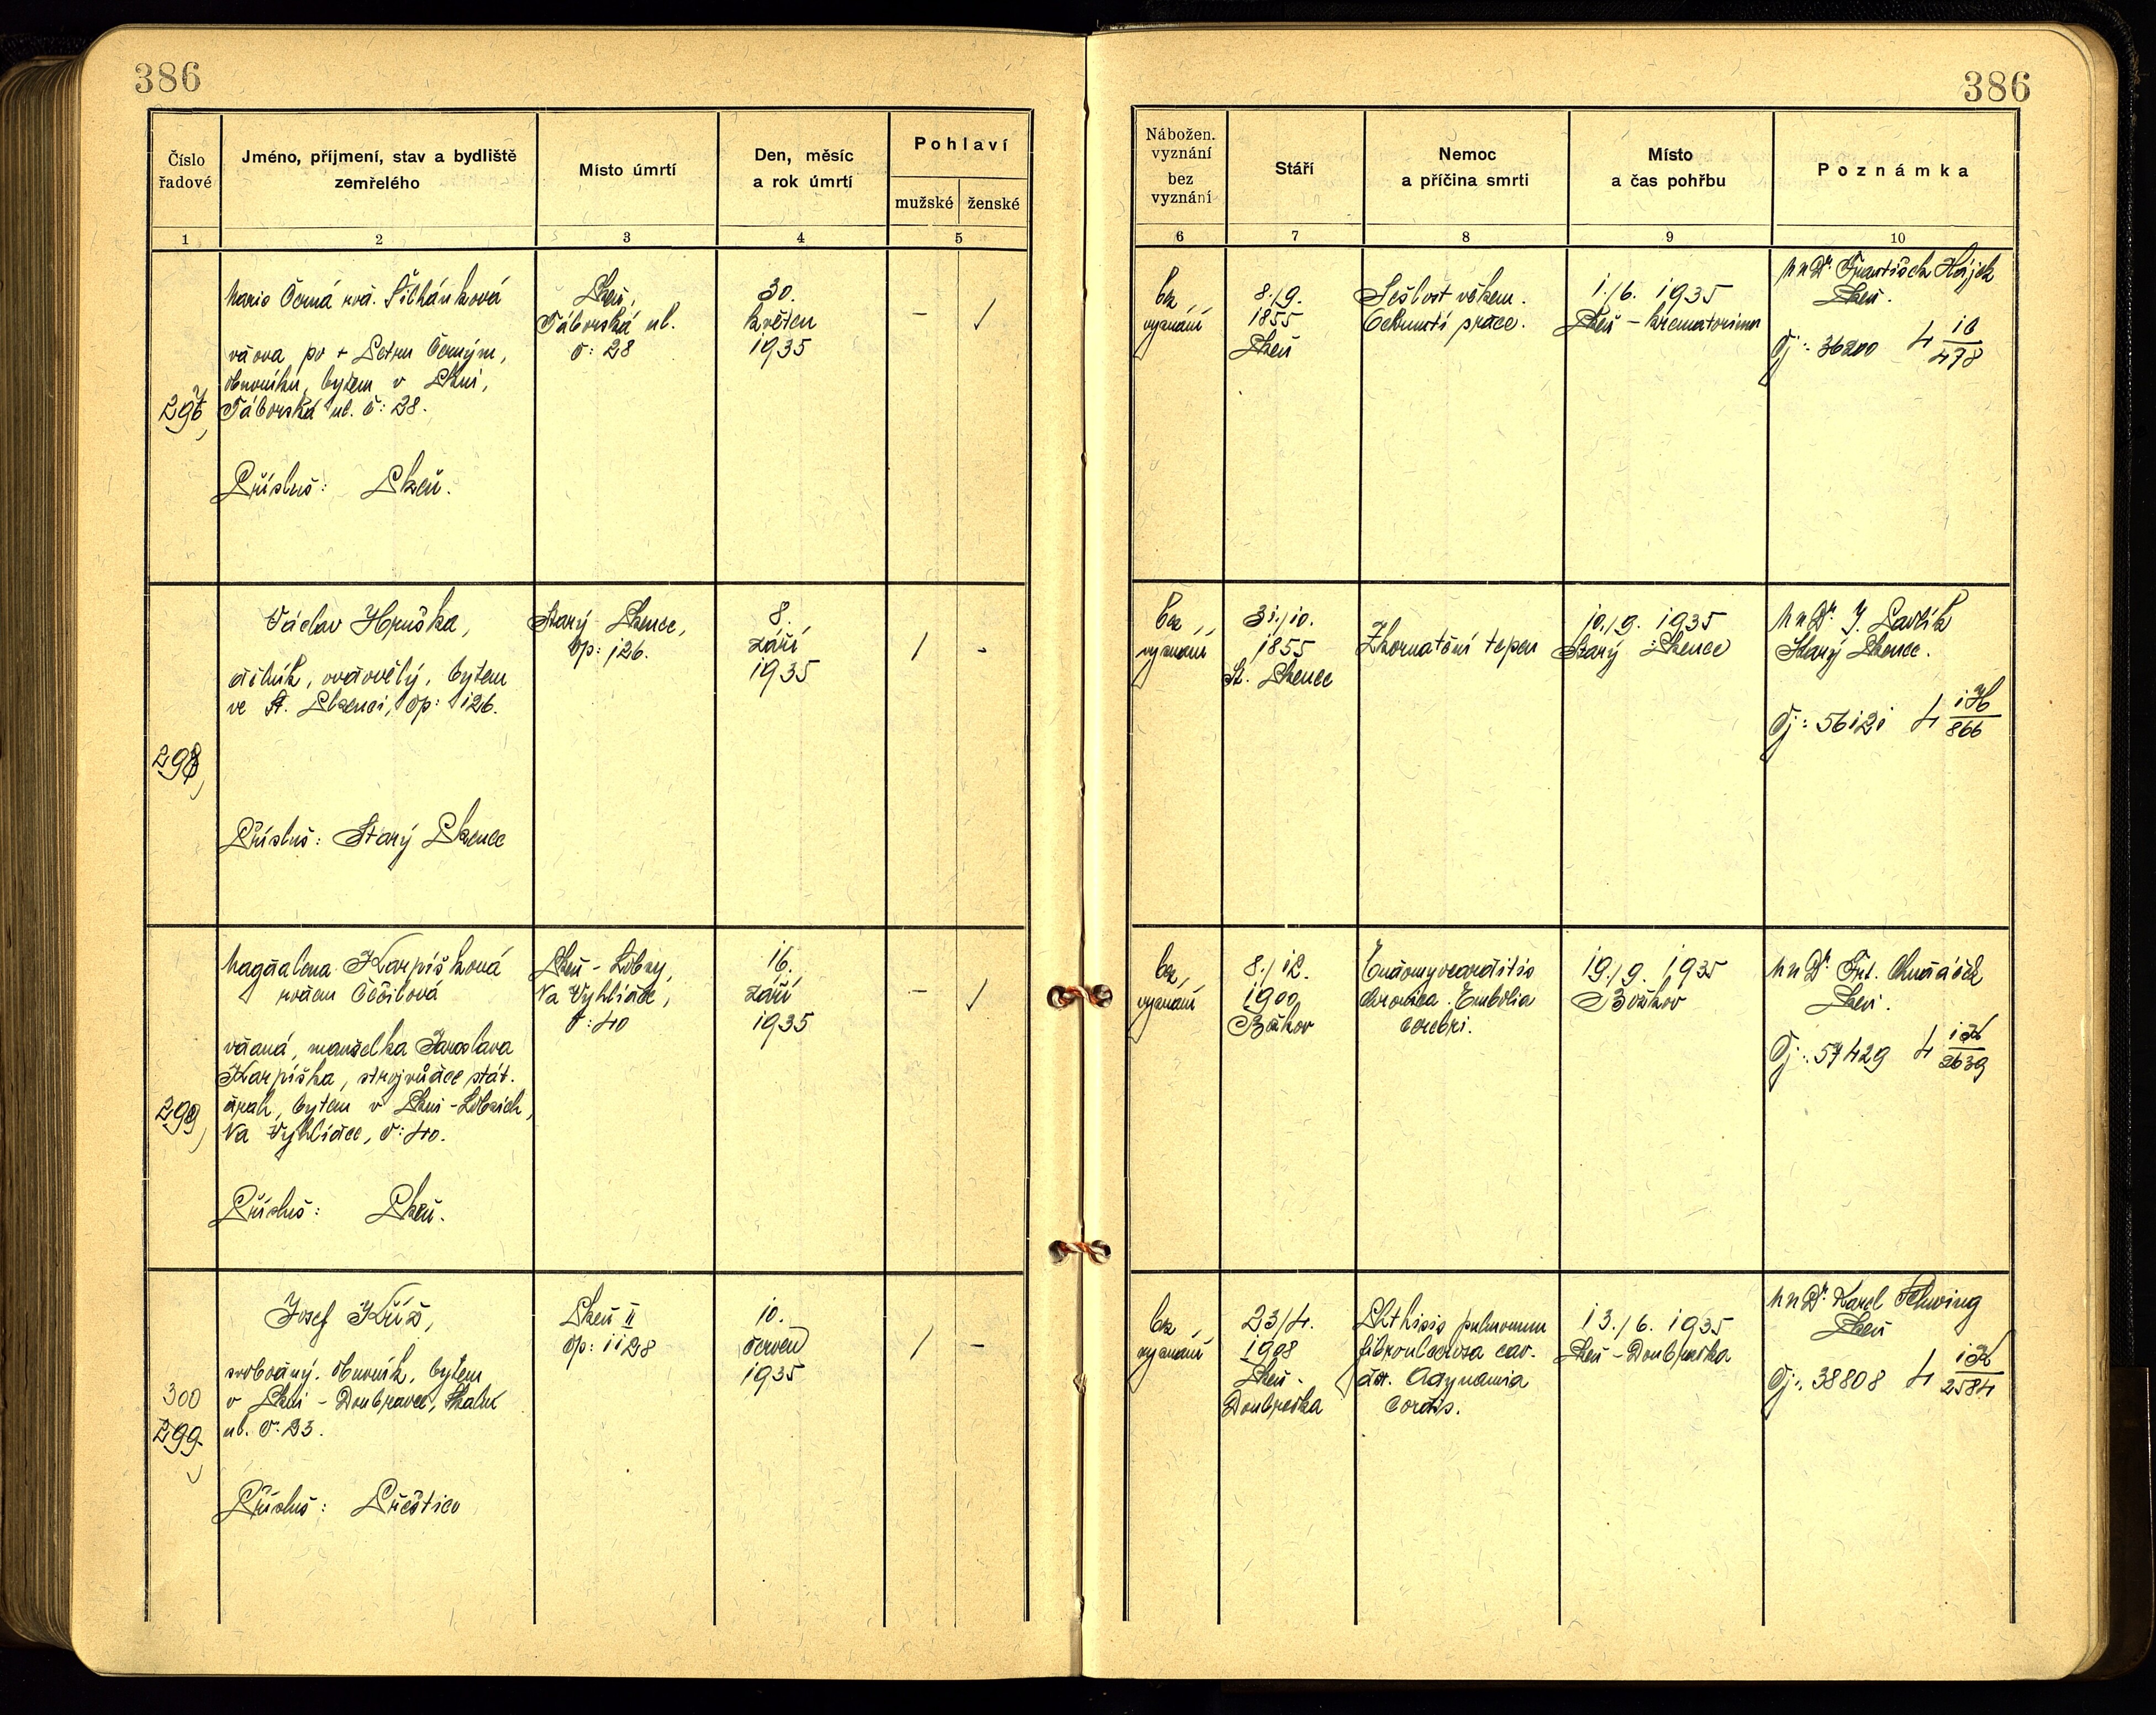 386
386
Číslo řadové
Jméno, příjmení, stav a bydliště zemřelého
Místo úmrtí
Den, měsíc a rok úmrtí
Pohlaví
mužské ženské
Nábožen. vyznání bez vyznání
Stáří
Nemoc a příčina smrti
Místo a čas pohřbu
Poznámka
1 2 3 4 5 6 7 8 9 10
297
Marie Černá roz.
vdova po + Petru Černým,
obuvníku, bytem v Plzni,
Táborská ul. č: 28.
Přísluš: Plzeň.
Plzeň,
Táborská ul.
č: 28
30.
květen
1935
- /
bez
vyznání
8./9.
1855
Plzeň
Sešlost věkem.
práce.
1./6. 1935
Plzeň - krematorium
MUDr. František Hájek
Plzeň.
Čj: 36200 4 10/478
298
Václav Hruška,
dělník, ovdovělý, bytem
ve St. Plzenci, čp: 126.
Přísluš: Starý Plzenec
Starý Plzenec,
čp: 126.
8.
září
1935
/ -
bez
vyznání
31./10.
1855
St. Plzenec
Zkornatění tepen
10./9. 1935
Starý Plzenec
MUDr. J. Pavlík
Starý Plzenec.
Čj: 56121 4 1H/866
299
Magdalena Karpíšková
rozen
vdaná, manželka Jaroslava
Karpíška, strojvůdce stát.
drah, bytem v Plzni - Lobzích,
Na Vyhlídce, č: 40.
Přísluš: Plzeň.
Plzeň - Lobzy,
Na Vyhlídce,
č: 40
16.
září
1935
- /
bez
vyznání
8./12.
1900
Endomyocarditis
chronica. Embolia
cerebri.
19./9. 1935
Božkov
MUDr.
Plzeň.
Čj: 57429 4 1K/2639
300
299
Josef Kříž,
svobodný, obuvník, bytem
v Plzni - Doubravce,
ul. č: 23.
Přísluš: Přeštice
Plzeň II
čp: 1128
10.
červen
1935
/ -
bez
vyznání
23/4.
1908
Plzeň -
Doubravka
Phthisis pulmonum
fibroulcerosa cav.
Adynamia
cordis.
13./6. 1935
Plzeň - Doubravka
MUDr. Karel
Plzeň
Čj: 38808 4 1K/2584